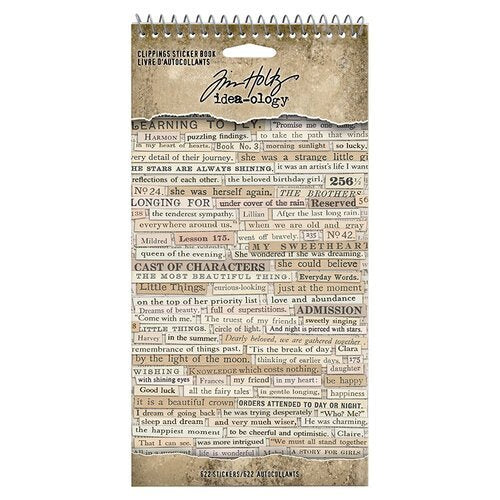 CLIPPINGS STICKER BOOK
LIVRE D'AUTOCOLLANTS
Tim Holtz
idea-ology
LEARNING TO FLY. "Promise me one
HARMON puzzling findings. to take the path that winds
in my heart of hearts. Book No. 3. morning sunlight so lucky.
very detail of their journey. she was a strange little g
THE STARS ARE ALWAYS SHINING. it was an artist's life I want
reflections of each other. the beloved birthday girl. 256¼
No 24. she was herself again. THE BROTHERS
LONGING FOR under cover of the rain Reserved
138 the tenderest sympathy. Lillian After the last long rain.
everywhere around us. when we are old and gray
Mildred Lesson 175. went off bravely. 235 No 42.
MY SWEETHEART
queen of the evening. She wondered if she was dreaming.
CAST OF CHARACTERS she could believe
THE MOST BEAUTIFUL THING. Everyday Words.
Little Things. curious-looking just at the moment
on the top of her priority list love and abundance
Dreams of beauty. full of superstitions. ADMISSION
"Come with me." The trust of my friends sweetly singing
LITTLE THINGS. circle of light. And night is pierced with stars.
Harvey in the summer. Dearly beloved, we are gathered together
remembrance of things past. 'Tis the break of day. Clara
by the light of the moon. thinking of earlier days. 175
WISHING KNOWLEDGE which costs nothing. daughter
with shining eyes Frances my friend in my heart: be happy
Good luck all the fairy tales in gentle longing, happiness
it is a beautiful crown ORDERS ATTENDED TO DAY OR NIGHT.
I dream of going back he was trying desperately "Who? Me?"
sleep and dream and very much wiser, He was charming.
the happiest moment to be cheerful and optimistic. Claire,
That I can see. was more intrigued "We must all stand together
in this moment. Milland A STORY FOR GIRLS
622 STICKERS/622 AUTOCOLLANTS